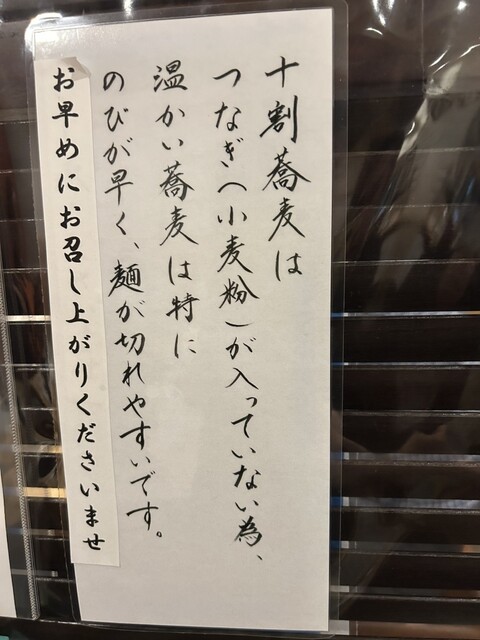 十割蕎麦は
つなぎ(小麦粉)が入っていない為、
温かい蕎麦は特に
のびが早く、麺が切れやすいです。
お早めにお召し上がりくださいませ